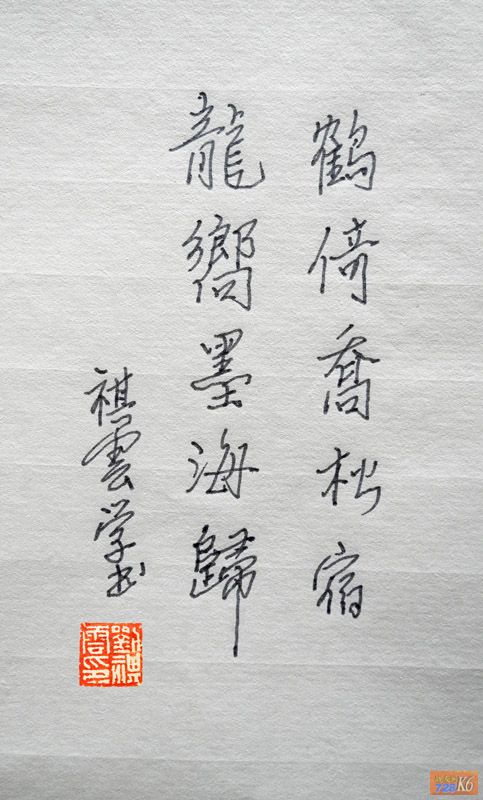 鶴倚喬松宿
龍嚮墨海歸
祺雲学书
劉祺雲印
728K6